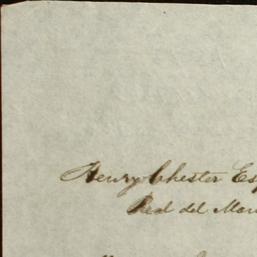 Henry Chester Esq
Real del Mon